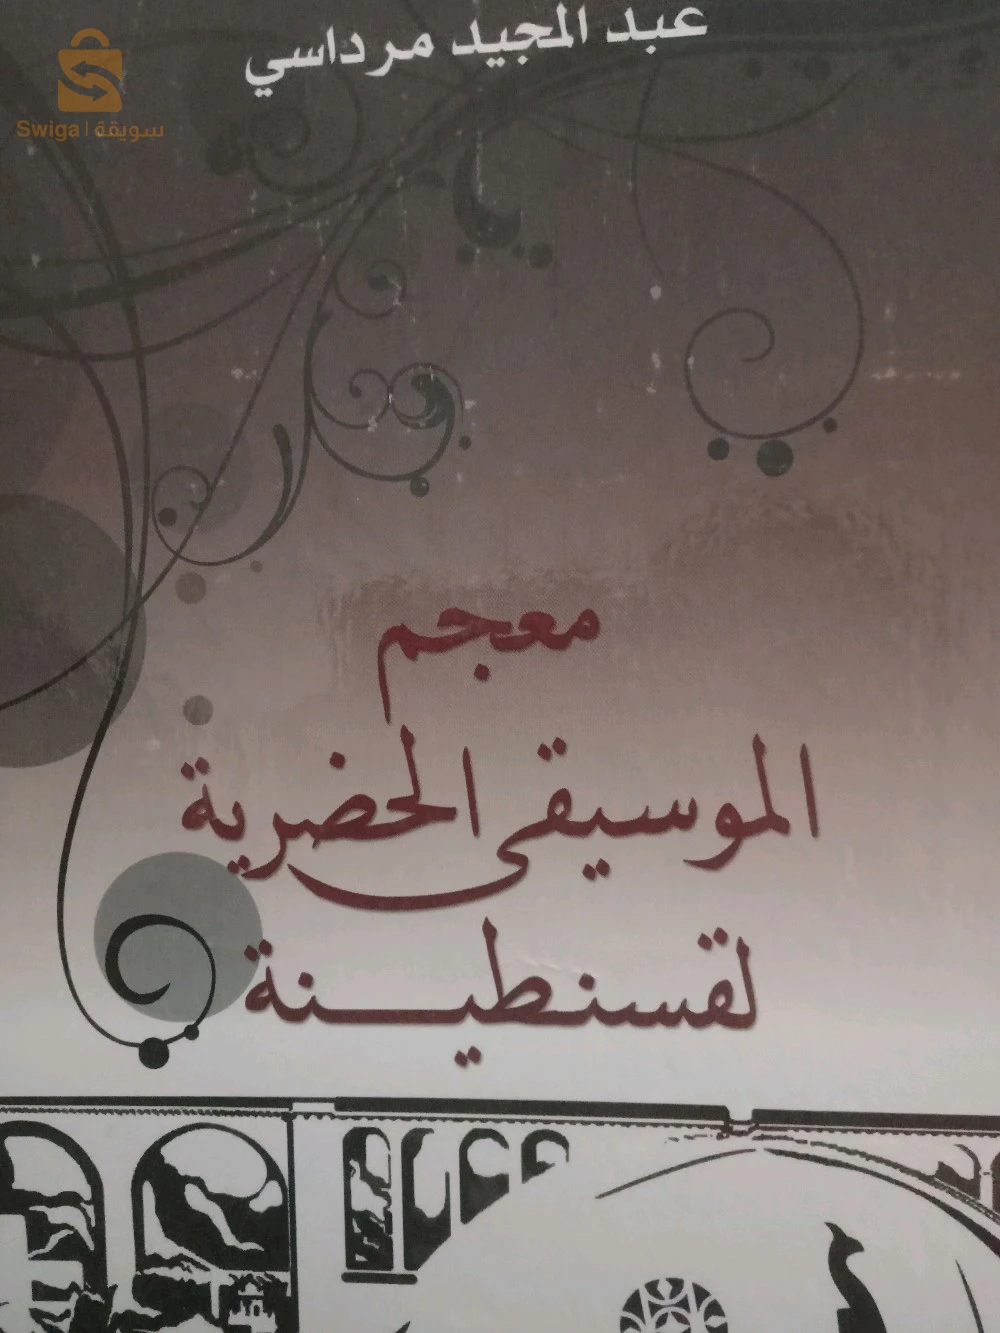 عبد المجيد مرداسي
Swiga | سويقة
معجم
الموسيقى الحضرية
لقسنطينة